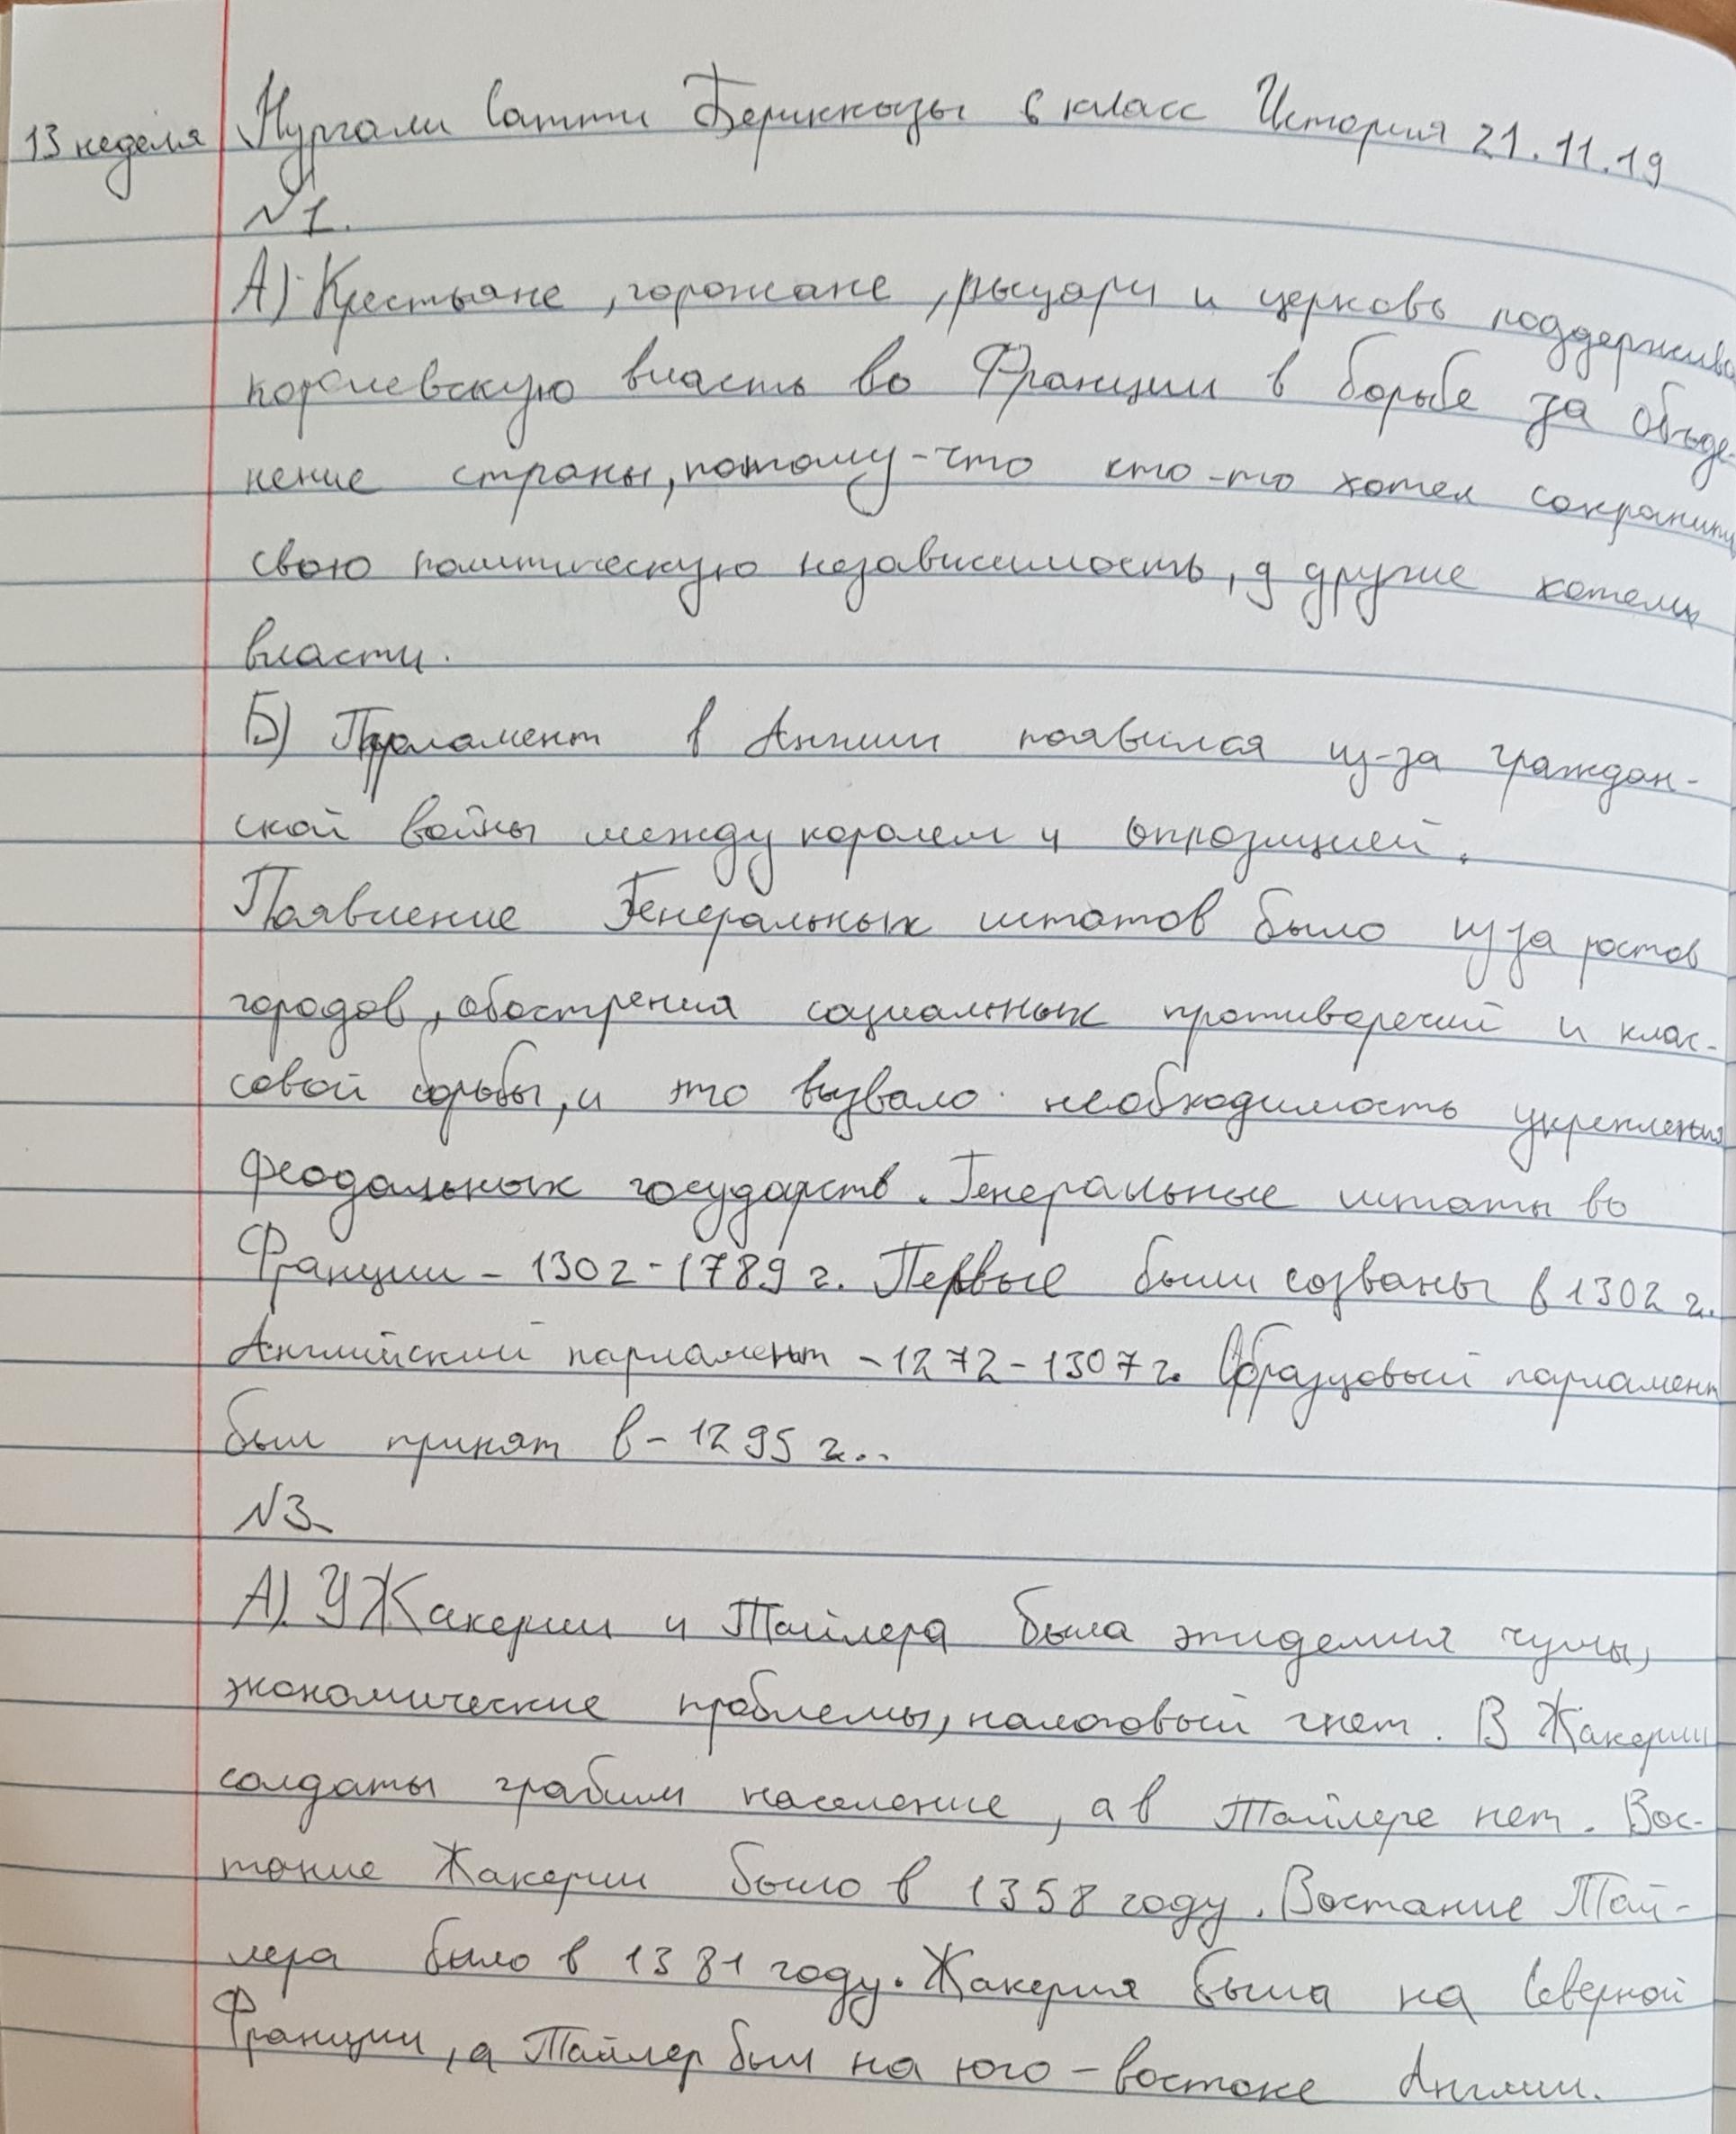 13 неделя Нургали Сатти Бериккызы 6 класс История 21.11.19
№1.
А) Крестьяне, горожане, рыцари и церковь поддержива
королевскую власть во Франции в борьбе за объеде-
нение страны, потому-что кто-то хотел сохранить
свою политическую независимость, а другие хотели
власти.
Б) Парламент в Англии появился из-за граждан-
ской войны между королем и опрозицией.
Появление Генеральных штатов было из за ростов
городов, обострения социальных противоречий и клас-
совой борьбы, и это вызвало необходимость укрепления
феодальных государств. Генеральные штаты во
Франции - 1302-1789 г. Первые были созваны в 1302 г.
Английский парламент - 1272-1307 г. Образцовый парламент
был принят в - 1295 г..
№3.
А). У Жакерии и Тайлера была эпидемия чумы,
экономические проблемы, налоговый гнет. В Жакерии
солдаты грабили население, а в Тайлере нет. Вос-
тание Жакерии было в 1358 году. Востание Тай-
лера было в 1381 году. Жакерия была на Северной
Франции, а Тайлер был на юго-востоке Англии.